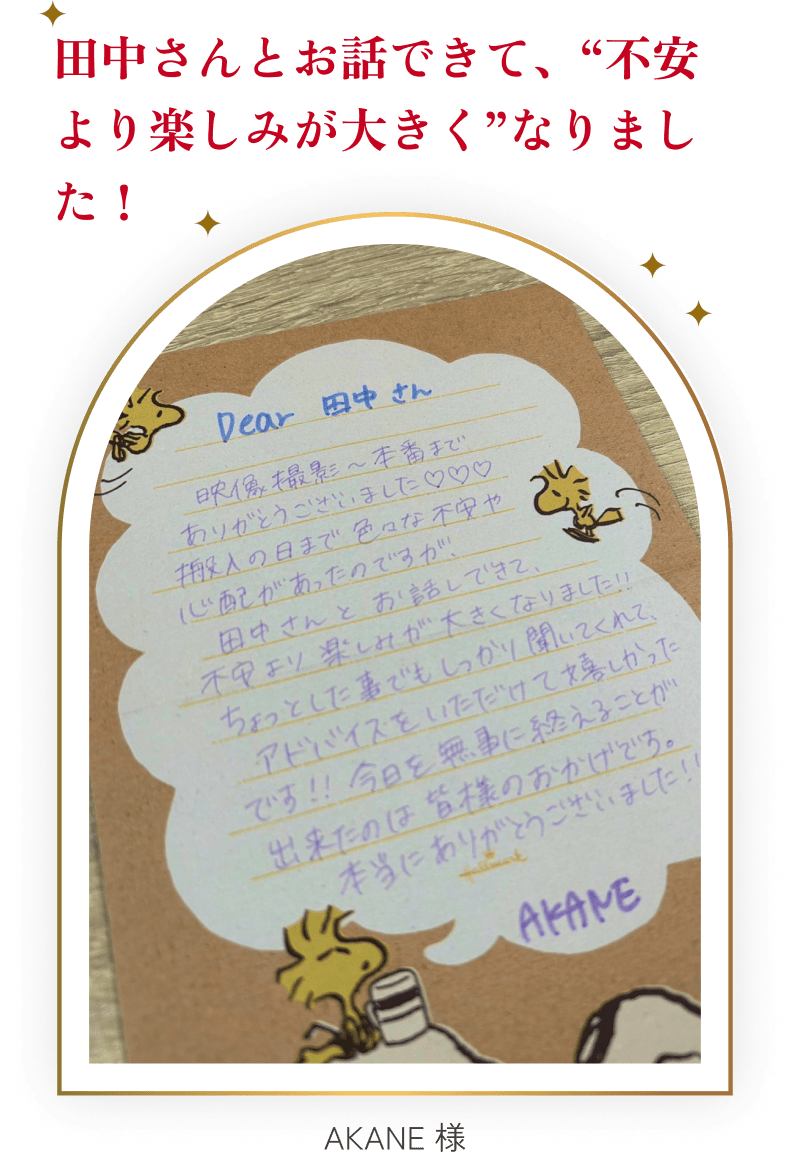 田中さんとお話できて、“不安
より楽しみが大きく”なりまし
た！
Dear 田中さん
映像撮影～本番まで
ありがとうございました♡♡♡
搬入の日まで色々な不安や
心配があったのですが、
田中さんとお話しできて、
不安より楽しみが大きくなりました!!
ちょっとした事でもしっかり聞いてくれて、
アドバイスをいただけて嬉しかった
です!! 今日を無事に終えることが
出来たのは皆様のおかげです。
本当にありがとうございました!!
Hallmark
AKANE
AKANE 様